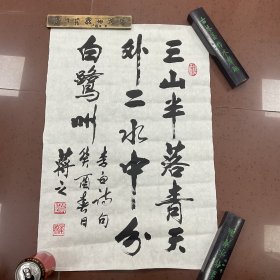 三山半落青天
外二水中分
白鹭洲
李白诗句
癸酉春日
蒋之